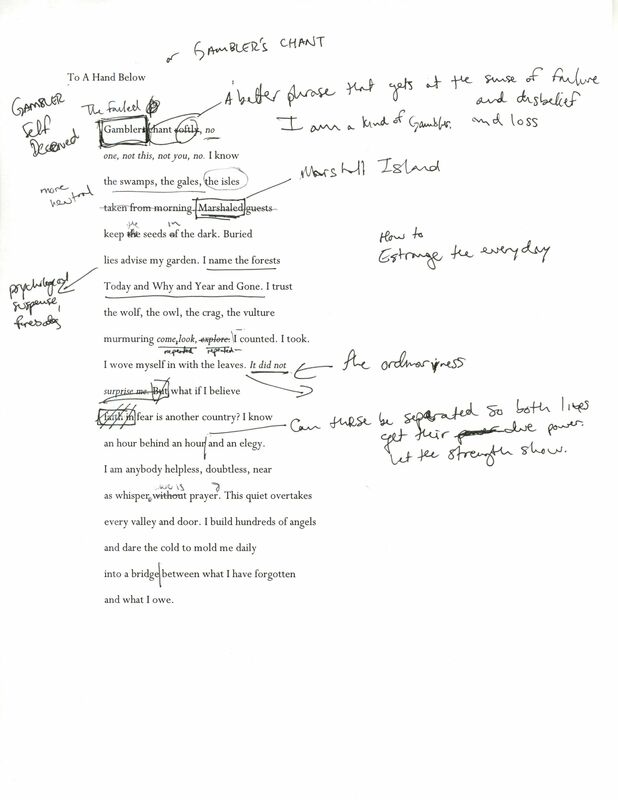 or GAMBLER'S CHANT
To A Hand Below
GAMBLER
Self
Deceived
The failed
A better phrase that gets at the sense of failure
and disbelief
I am a kind of Gambler. and loss
Gamblers chant softly, no
one, not this, not you, no. I know
more
neutral
the swamps, the gales, the isles
Marshall Island
taken from morning. Marshaled guests
the in
keep the seeds of the dark. Buried
How to
Estrange the everyday
lies advise my garden. I name the forests
psychological
suspense,
Today and Why and Year and Gone. I trust
the wolf, the owl, the crag, the vulture
murmuring come, look, explore. I counted. I took.
repeated repeated
I wove myself in with the leaves. It did not
the ordinariness
surprise me. But what if I believe
faith in fear is another country? I know
Can these be separated so both lines
get their due power.
Let the strength show.
an hour behind an hour and an elegy.
I am anybody helpless, doubtless, near
as whisper, without prayer. This quiet overtakes
every valley and door. I build hundreds of angels
and dare the cold to mold me daily
into a bridge between what I have forgotten
and what I owe.